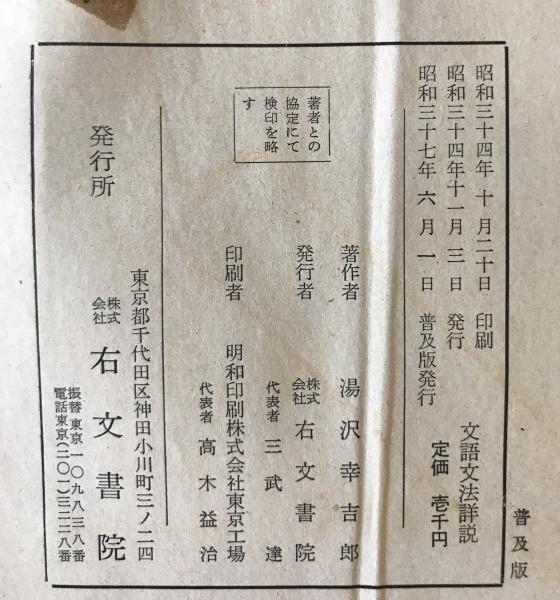 普及版
文語文法詳説
定価 壱千円
昭和三十四年 十 月二十日 印刷
昭和三十四年十一月 三 日 発行
昭和三十七年 六 月 一 日 普及版発行
著者との
協定にて
検印を略
す
著作者 湯沢幸吉郎
発行者 株式会社 右文書院
代表者 三武達
印刷者 明和印刷株式会社東京工場
代表者 高木益治
発行所
東京都千代田区神田小川町三ノ二四
株式会社 右文書院
振替東京一〇九八三八番
電話東京(二〇一)三二二八番